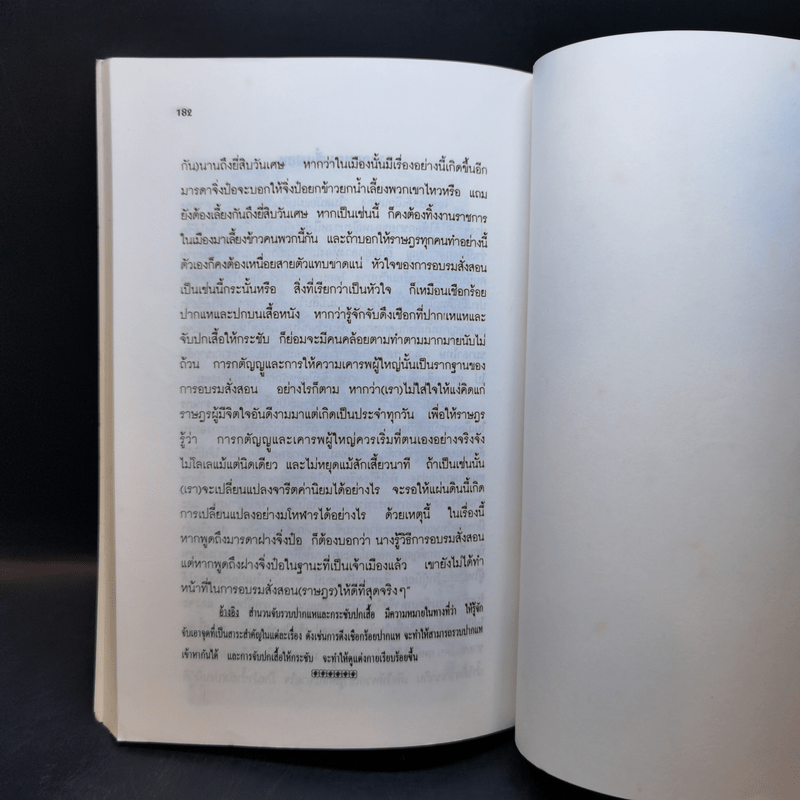 182
กัน)นานถึงยี่สิบวันเศษ หากว่าในเมืองนั้นมีเรื่องอย่างนี้เกิดขึ้นอีก
มารดาจิ่งป๋อจะบอกให้จิ่งป๋อยกข้าวยกน้ำเลี้ยงพวกเขาไหวหรือ แถม
ยังต้องเลี้ยงกันถึงยี่สิบวันเศษ หากเป็นเช่นนี้ ก็คงต้องทิ้งงานราชการ
ในเมืองมาเลี้ยงข้าวคนพวกนี้กัน และถ้าบอกให้ราษฎรทุกคนทำอย่างนี้
ตัวเองก็คงต้องเหนื่อยสายตัวแทบขาดแน่ หัวใจของการอบรมสั่งสอน
เป็นเช่นนี้กระนั้นหรือ สิ่งที่เรียกว่าเป็นหัวใจ ก็เหมือนเชือกร้อย
ปากแหและปกบนเสื้อหนัง หากว่ารู้จักจับดึงเชือกที่ปากแหและ
จับปกเสื้อให้กระชับ ก็ย่อมจะมีคนคล้อยตามทำตามมากมายนับไม่
ถ้วน การกตัญญูและการให้ความเคารพผู้ใหญ่นั้นเป็นรากฐานของ
การอบรมสั่งสอน อย่างไรก็ตาม หากว่า(เรา)ไม่ใส่ใจให้แง่คิดแก่
ราษฎรผู้มีจิตใจอันดีงามมาแต่เกิดเป็นประจำทุกวัน เพื่อให้ราษฎร
รู้ว่า การกตัญญูและเคารพผู้ใหญ่ควรเริ่มที่ตนเองอย่างจริงจัง
ไม่โลเลแม้แต่นิดเดียว และไม่หยุดแม้สักเสี้ยวนาที ถ้าเป็นเช่นนั้น
(เรา)จะเปลี่ยนแปลงจารีตค่านิยมได้อย่างไร จะรอให้แผ่นดินนี้เกิด
การเปลี่ยนแปลงอย่างมโหฬารได้อย่างไร ด้วยเหตุนี้ ในเรื่องนี้
หากพูดถึงมารดาฝางจิ่งป๋อ ก็ต้องบอกว่า นางรู้วิธีการอบรมสั่งสอน
แต่หากพูดถึงฝางจิ่งป๋อในฐานะที่เป็นเจ้าเมืองแล้ว เขายังไม่ได้ทำ
หน้าที่ในการอบรมสั่งสอน(ราษฎร)ให้ดีที่สุดจริงๆ"
อ้างอิง สำนวนจับรวบปากแหและกระชับปกเสื้อ มีความหมายในทางที่ว่า ให้รู้จัก
จับเอาจุดที่เป็นสาระสำคัญในแต่ละเรื่อง ดังเช่นการดึงเชือกร้อยปากแห จะทำให้สามารถรวบปากแห
เข้าหากันได้ และการจับปกเสื้อให้กระชับ จะทำให้ดูแต่งกายเรียบร้อยขึ้น